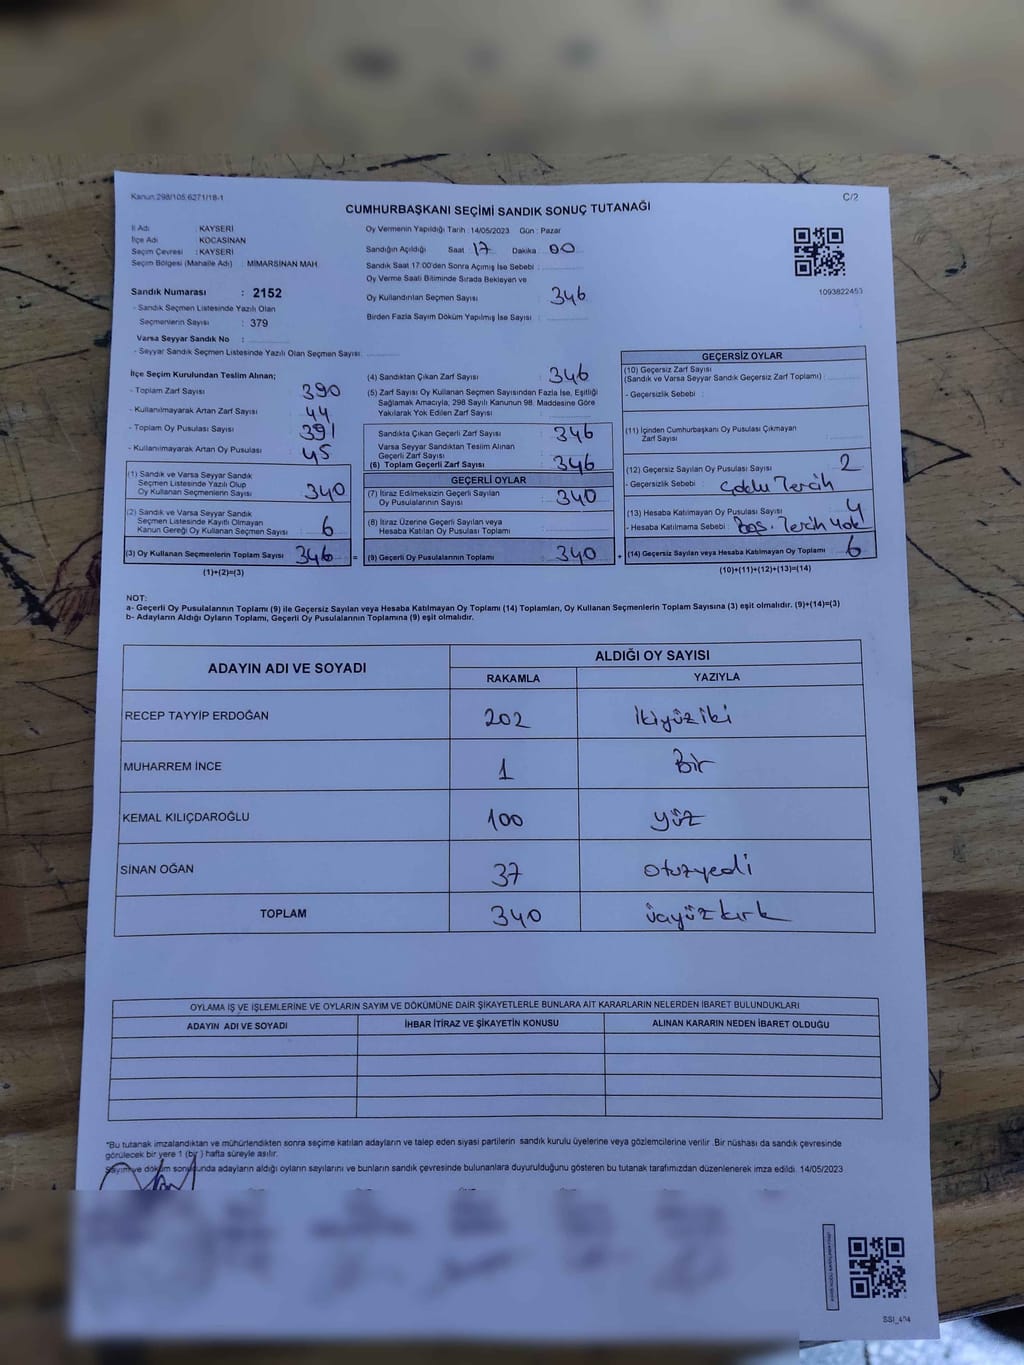 Kanun:298/105,6271/18-1
C/2
CUMHURBAŞKANI SEÇİMİ SANDIK SONUÇ TUTANAĞI
İl Adı : KAYSERİ
İlçe Adı : KOCASİNAN
Seçim Çevresi : KAYSERİ
Seçim Bölgesi (Mahalle Adı) : MİMARSİNAN MAH.
Sandık Numarası : 2152
- Sandık Seçmen Listesinde Yazılı Olan
Seçmenlerin Sayısı : 379
Varsa Seyyar Sandık No :
- Seyyar Sandık Seçmen Listesinde Yazılı Olan Seçmen Sayısı
Oy Vermenin Yapıldığı Tarih : 14/05/2023 Gün : Pazar
Sandığın Açıldığı Saat : 17 Dakika : 00
Sandık Saat 17:00'den Sonra Açımış İse Sebebi :
Oy Verme Saati Bitiminde Sırada Bekleyen ve
Oy Kullandırılan Seçmen Sayısı : 346
Birden Fazla Sayım Döküm Yapılmış İse Sayısı :
1093822453
İlçe Seçim Kurulundan Teslim Alınan;
- Toplam Zarf Sayısı : 390
- Kullanılmayarak Artan Zarf Sayısı : 44
- Toplam Oy Pusulası Sayısı : 391
- Kullanılmayarak Artan Oy Pusulası : 45
(1) Sandık ve Varsa Seyyar Sandık
Seçmen Listesinde Yazılı Olup
Oy Kullanan Seçmenlerin Sayısı : 340
(2) Sandık ve Varsa Seyyar Sandık
Seçmen Listesinde Kayıtlı Olmayan
Kanun Gereği Oy Kullanan Seçmen Sayısı : 6
(3) Oy Kullanan Seçmenlerin Toplam Sayısı : 346 =
(1)+(2)=(3)
(4) Sandıktan Çıkan Zarf Sayısı : 346
(5) Zarf Sayısı Oy Kullanan Seçmen Sayısından Fazla İse, Eşitliği
Sağlamak Amacıyla, 298 Sayılı Kanunun 98. Maddesine Göre
Yakılarak Yok Edilen Zarf Sayısı :
Sandıkta Çıkan Geçerli Zarf Sayısı : 346
Varsa Seyyar Sandıktan Teslim Alınan
Geçerli Zarf Sayısı :
(6) Toplam Geçerli Zarf Sayısı : 346
GEÇERLİ OYLAR
(7) İtiraz Edilmeksizin Geçerli Sayılan
Oy Pusulalarının Sayısı : 340
(8) İtiraz Üzerine Geçerli Sayılan veya
Hesaba Katılan Oy Pusulası Toplamı :
(9) Geçerli Oy Pusulalarının Toplamı : 340 +
GEÇERSİZ OYLAR
(10) Geçersiz Zarf Sayısı
(Sandık ve Varsa Seyyar Sandık Geçersiz Zarf Toplamı) :
- Geçersizlik Sebebi :
(11) İçinden Cumhurbaşkanı Oy Pusulası Çıkmayan
Zarf Sayısı :
(12) Geçersiz Sayılan Oy Pusulası Sayısı : 2
- Geçersizlik Sebebi : Çoklu Tercih
(13) Hesaba Katılmayan Oy Pusulası Sayısı : 4
- Hesaba Katılmama Sebebi : Boş. Tercih Yok!
(14) Geçersiz Sayılan veya Hesaba Katılmayan Oy Toplamı : 6
(10)+(11)+(12)+(13)=(14)
NOT:
a- Geçerli Oy Pusulalarının Toplamı (9) ile Geçersiz Sayılan veya Hesaba Katılmayan Oy Toplamı (14) Toplamları, Oy Kullanan Seçmenlerin Toplam Sayısına (3) eşit olmalıdır. (9)+(14)=(3)
b- Adayların Aldığı Oyların Toplamı, Geçerli Oy Pusulalarının Toplamına (9) eşit olmalıdır.
ADAYIN ADI VE SOYADI
ALDIĞI OY SAYISI
RAKAMLA YAZIYLA
RECEP TAYYİP ERDOĞAN 202 ikiyüziki
MUHARREM İNCE 1 Bir
KEMAL KILIÇDAROĞLU 100 yüz
SİNAN OĞAN 37 otuzyedi
TOPLAM 340 üçyüzkırk
OYLAMA İŞ VE İŞLEMLERİNE VE OYLARIN SAYIM VE DÖKÜMÜNE DAİR ŞİKAYETLERLE BUNLARA AİT KARARLARIN NELERDEN İBARET BULUNDUKLARI
ADAYIN ADI VE SOYADI İHBAR İTİRAZ VE ŞİKAYETİN KONUSU ALINAN KARARIN NEDEN İBARET OLDUĞU
*Bu tutanak imzalandıktan ve mühürlendikten sonra seçime katılan adayların ve talep eden siyasi partilerin sandık kurulu üyelerine veya gözlemcilerine verilir. Bir nüshası da sandık çevresinde
görülecek bir yere 1 (bir) hafta süreyle asılır.
Sayım ve döküm sonucunda adayların aldığı oyların sayılarını ve bunların sandık çevresinde bulunanlara duyurulduğunu gösteren bu tutanak tarafımızdan düzenlenerek imza edildi. 14/05/2023